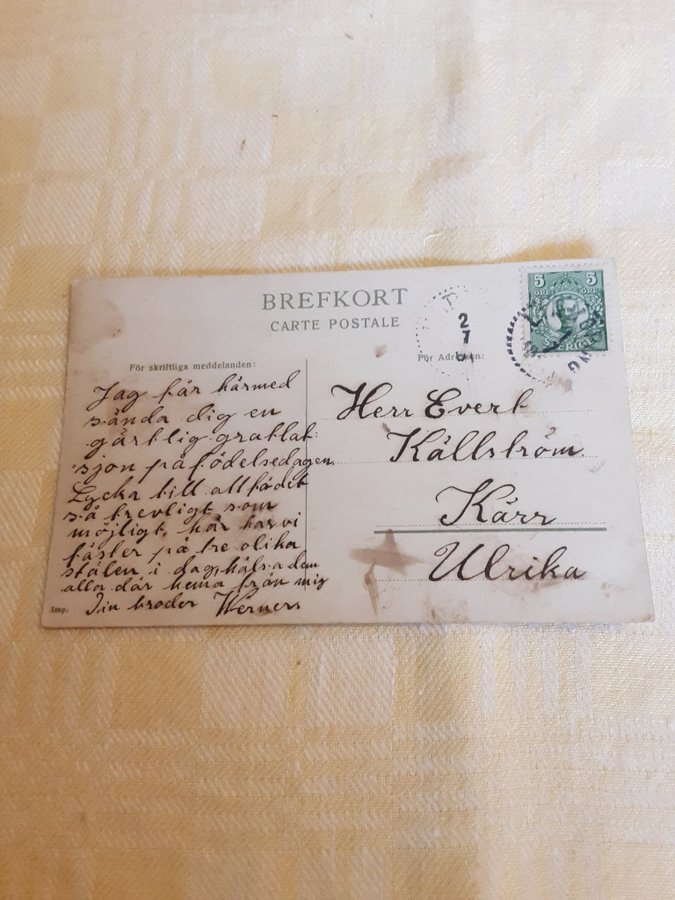 BREFKORT
CARTE POSTALE
För skriftliga meddelanden:
Jag får härmed
sända dig en
gärtlig grattlat-
sjon på födelsedagen.
Lycka till att få det
så trevligt som
möjligt, här har vi
fäster på tre olika
stälen i dag, hälsa dem
alla där hema från mig
Din broder Werner
Imp.
2
7
5 5
ÖRE ÖRE
SVERIGE
För Adressen:
Herr Evert
Källström
Kärr
Ulrika